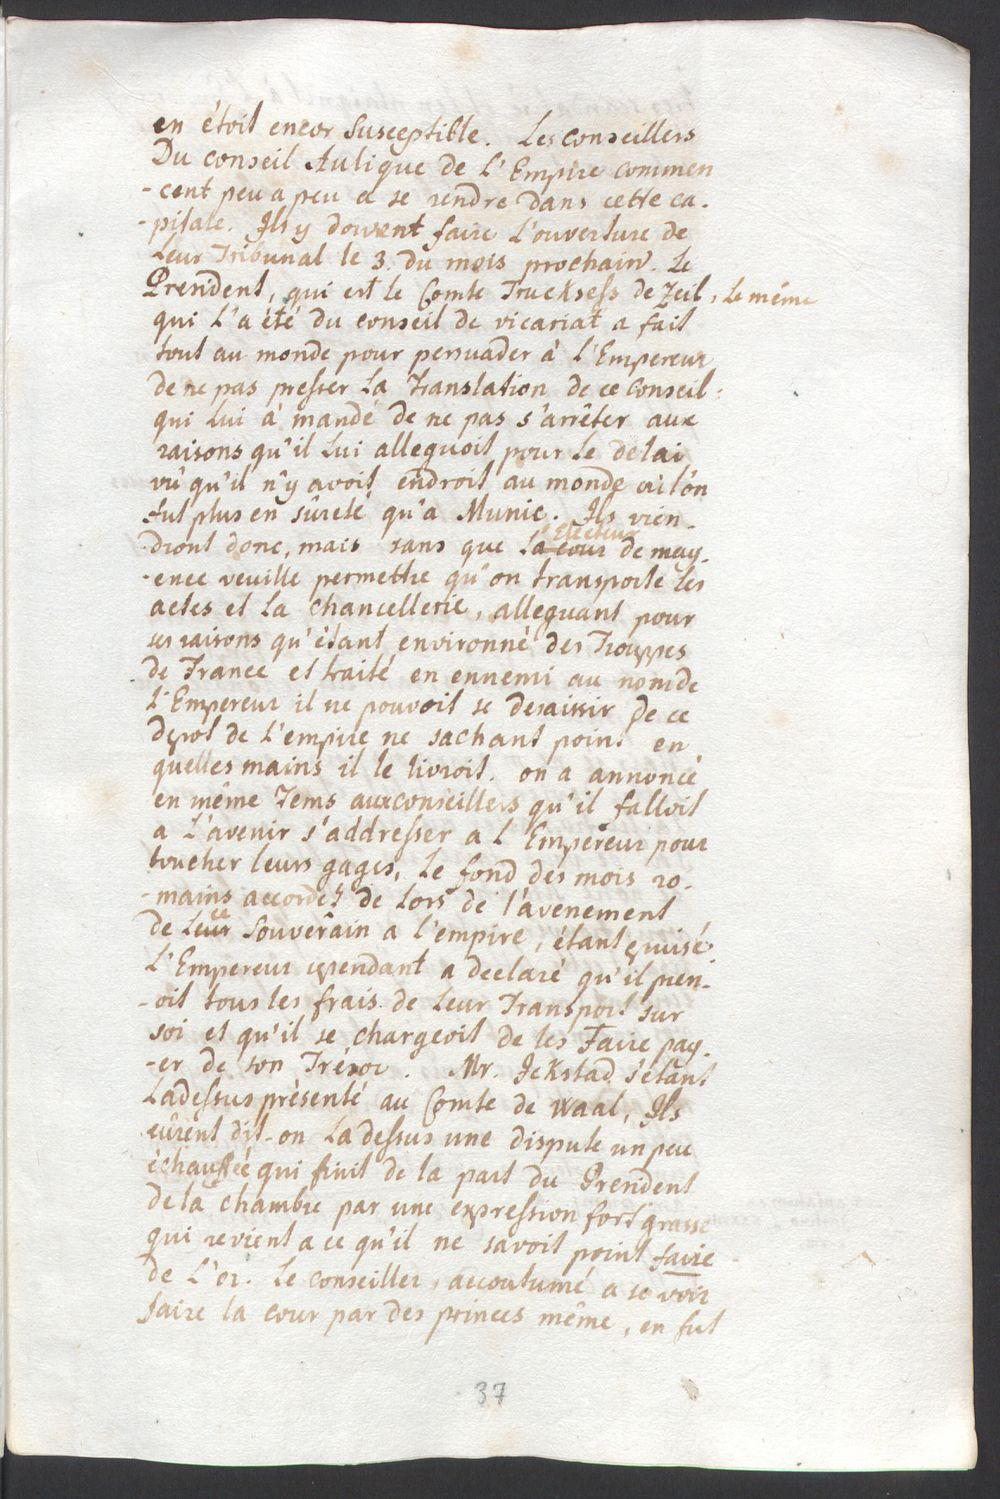 en étoit encor susceptible. Les conseillers
Du conseil Aulique de L'Empire commen
-cent peu a peu a se rendre dans cette ca-
-pitale. Ils y doivent faire L'ouverture de
Leur Tribunal le 3. du mois prochain. Le
President, qui est le Comte Trucksess de Zeil, le même
qui L'a été du conseil de vicariat a fait
tout au monde pour persuader à L'Empereur
de ne pas presser La Translation de ce conseil:
qui Lui à mandé de ne pas s'arrêter aux
raisons qu'il Lui alleguoit pour Le délai
vû qu'il n'y avoit endroit au monde où l'on
fut plus en sûreté qu'a Munic. Ils vien-
-dront donc, mais sans que La cour l'Electeur de may-
-ence veuille permettre qu'on transporte Les
actes et La chancellerie, alleguant pour
ses raisons qu'étant environné des Trouppes
de France et traité en ennemi au nom de
L'Empereur il ne pouvoit se desaisir de ce
depot de L'empire ne sachant point en
quelles mains il le livroit. on a annoncé
en même Tems aux conseillers qu'il falloit
a L'avenir s'addresser a L'Empereur pour
toucher leurs gages, Le fond des mois ro-
-mains accordez de Lors de l'avenement
de Leur ce Souverain a l'empire, étant epuisé.
L'Empereur cependant a declaré qu'il pren-
-oit tous les frais de Leur Transport sur
soi et qu'il se chargeoit de les Faire pay-
-er de son Trésor. Mr. Ickstad s'étant
Ladessus présenté au Comte de Waal, Ils
eûrent dit-on La dessus une dispute un peu
échauffée qui finit de la part du President
de la chambre par une expression fort grasse
qui revient a ce qu'il ne savoit point faire
de L'or. Le conseiller, accoutumé a se voir
faire la cour par des princes même, en fut
37